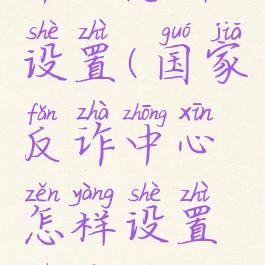 shè zhì guó jiā
设置(国家
fǎn zhà zhōng xīn
反诈中心
zěn yàng shè zhì
怎样设置